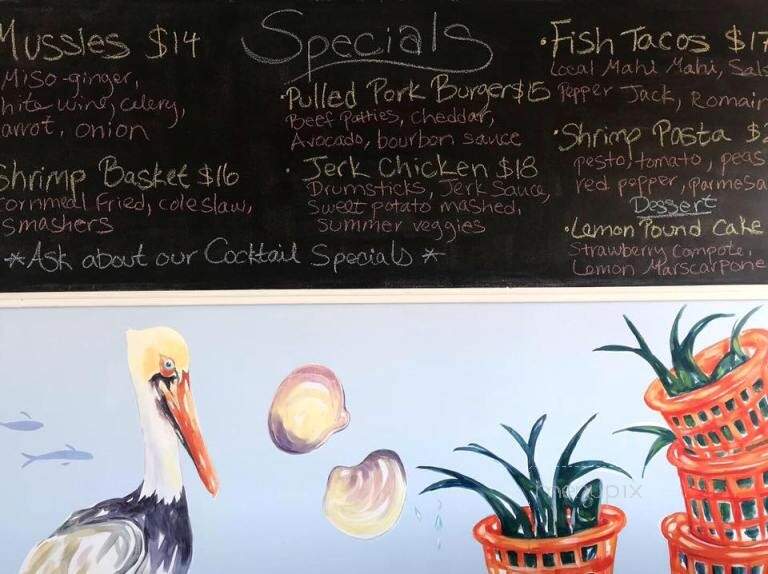 Mussles $14
Miso-ginger,
white wine, celery,
carrot, onion
Shrimp Basket $16
cornmeal fried, coleslaw,
smashers
*Ask about our Cocktail Specials *
Specials
• Pulled Pork Burger $15
Beef Patties, cheddar,
Avocado, bourbon sauce
• Jerk Chicken $18
Drumsticks, Jerk Sauce,
Sweet potato mashed,
summer veggies
• Fish Tacos $17
Local Mahi Mahi, Sals
Pepper Jack, Romain
• Shrimp Pasta $2
pesto, tomato, peas
red pepper, parmesa
Dessert
• Lemon Pound Cake
Strawberry Compote,
Lemon Marscarpone